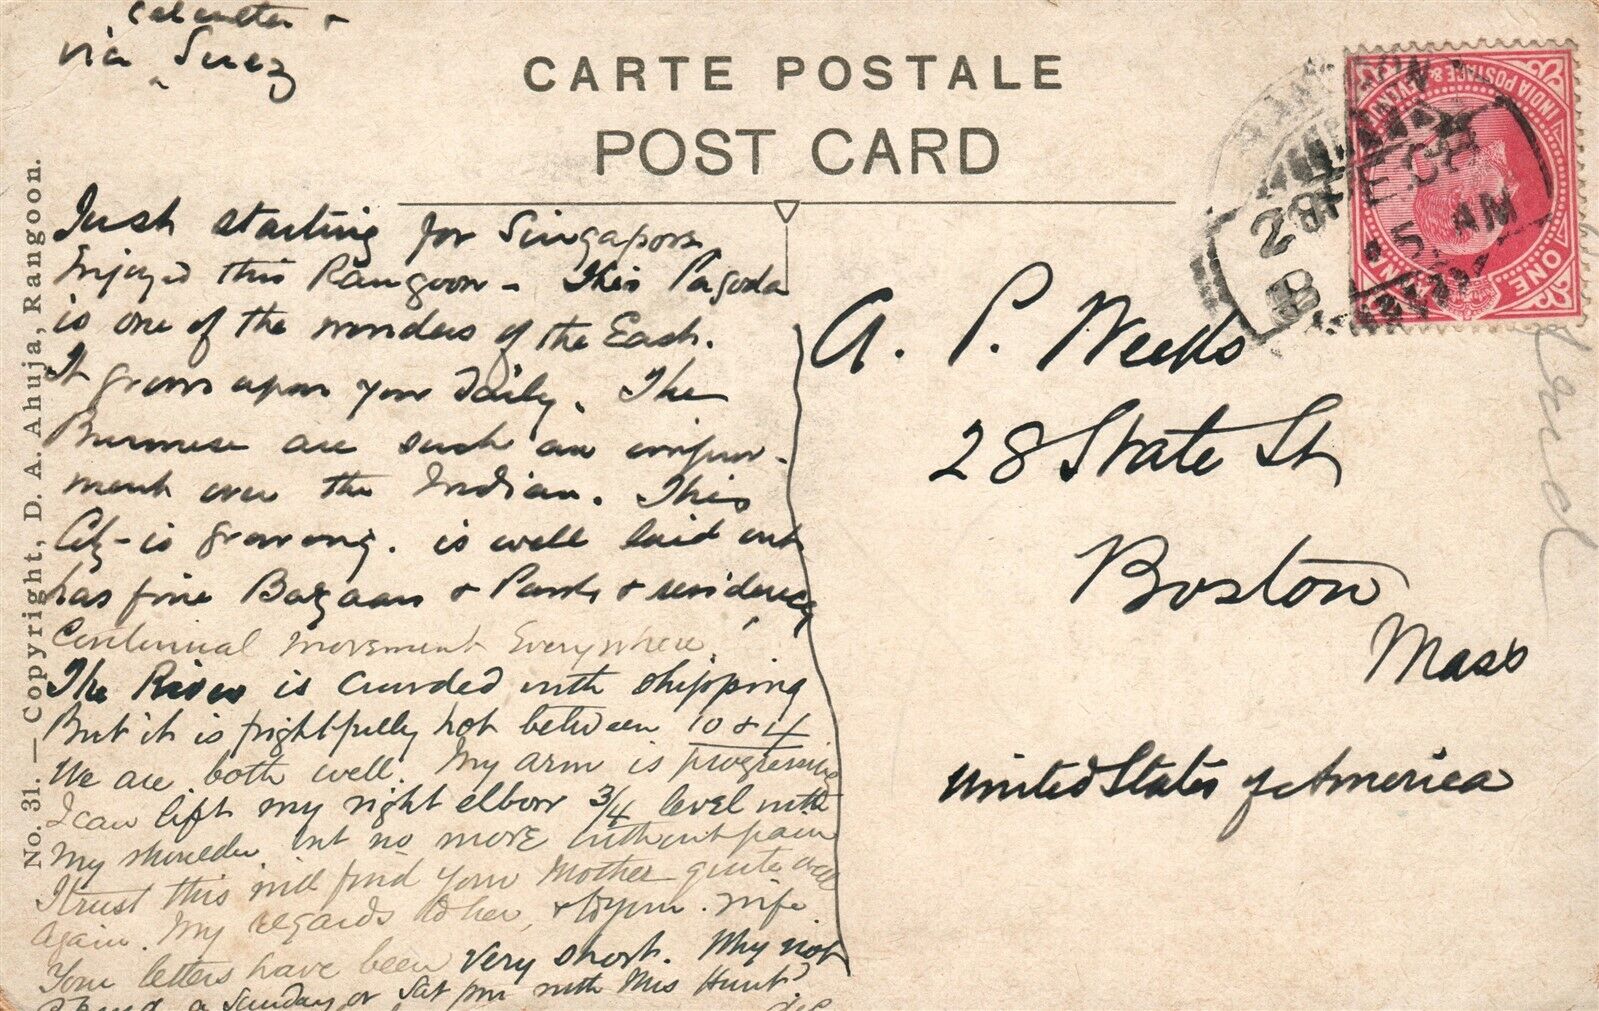 Calcutta &
via Suez
CARTE POSTALE
POST CARD
INDIA POSTAGE &
ONE
28
5. AM
B
No. 31.—Copyright, D. A. Ahuja, Rangoon.
Just starting for Singapore,
Enjoyed this Rangoon – This Pagoda
is one of the wonders of the East.
It grows upon you daily. The
Burmese are such an improve-
ment over the Indian. This
City is growing. is well laid out
has fine Bazaars & Parks & residences
Centennial Movement Everywhere.
The River is crowded with shipping
But it is frightfully hot between 10 & 4
We are both well. My arm is progressing
I can lift my right elbow 3/4 level with
My shoulder but no more without pain
I trust this will find your Mother quite well
again. My regards to her, & to your wife
Your letters have been very short. Why not
Spend a Sunday or Sat pm with Mrs Hunt?
A. P. Weeks
28 State St,
Boston
Mass
United States of America